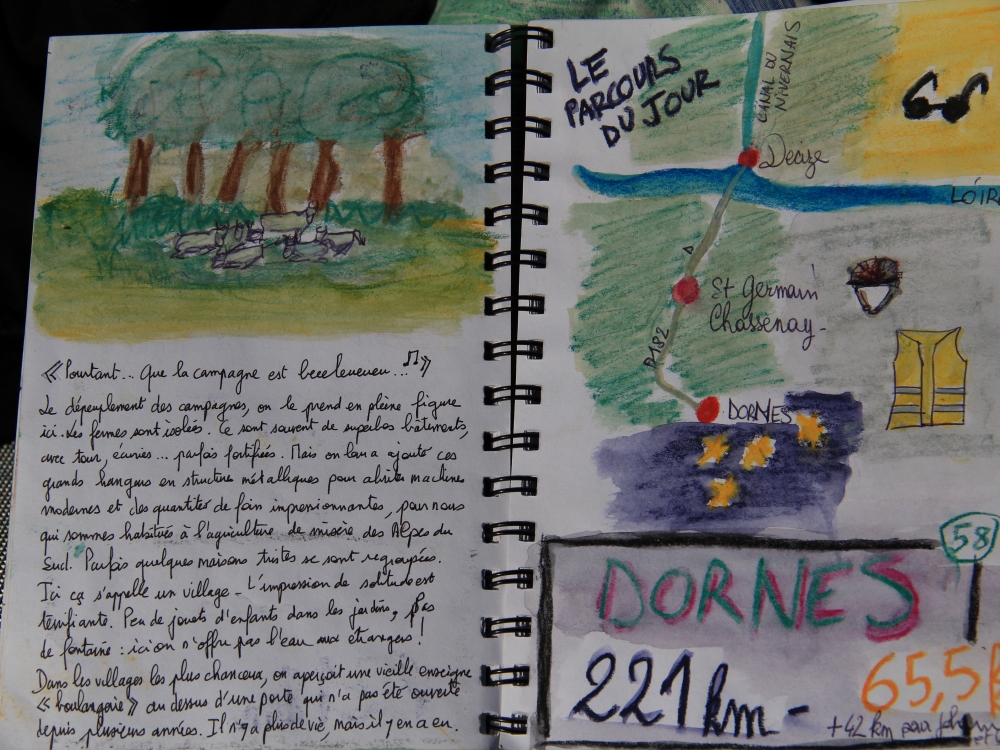 « Pourtant... Que la campagne est beeeleueueu... »
Le dépeuplement des campagnes, on le prend en pleine figure
ici. Les fermes sont isolées. Ce sont souvent de superbes bâtiments,
avec tour, écuries... parfois fortifiés. Mais on leur a ajouté ces
grands hangars en structure métalliques pour abriter machines
modernes et des quantités de foin impressionnantes, pour nous
qui sommes habitués à l'agriculture de misère des Alpes du
Sud. Parfois quelques maisons tristes se sont regroupées.
Ici ça s'appelle un village - L'impression de solitude est
terrifiante. Peu de jouets d'enfants dans les jardins, pas
de fontaine : ici on n'offre pas l'eau aux étrangers !
Dans les villages les plus chanceux, on aperçoit une vieille enseigne
« boulangerie » au dessus d'une porte qui n'a pas été ouverte
depuis plusieurs années. Il n'y a plus de vie, mais il y en a eu.
LE
PARCOURS
DU JOUR
CANAL DU
NIVERNAIS
Decize
LOIR
St Germain
Chassenay-
D182
DORNES
58
DORNES
221 km -
65,5
+42 km